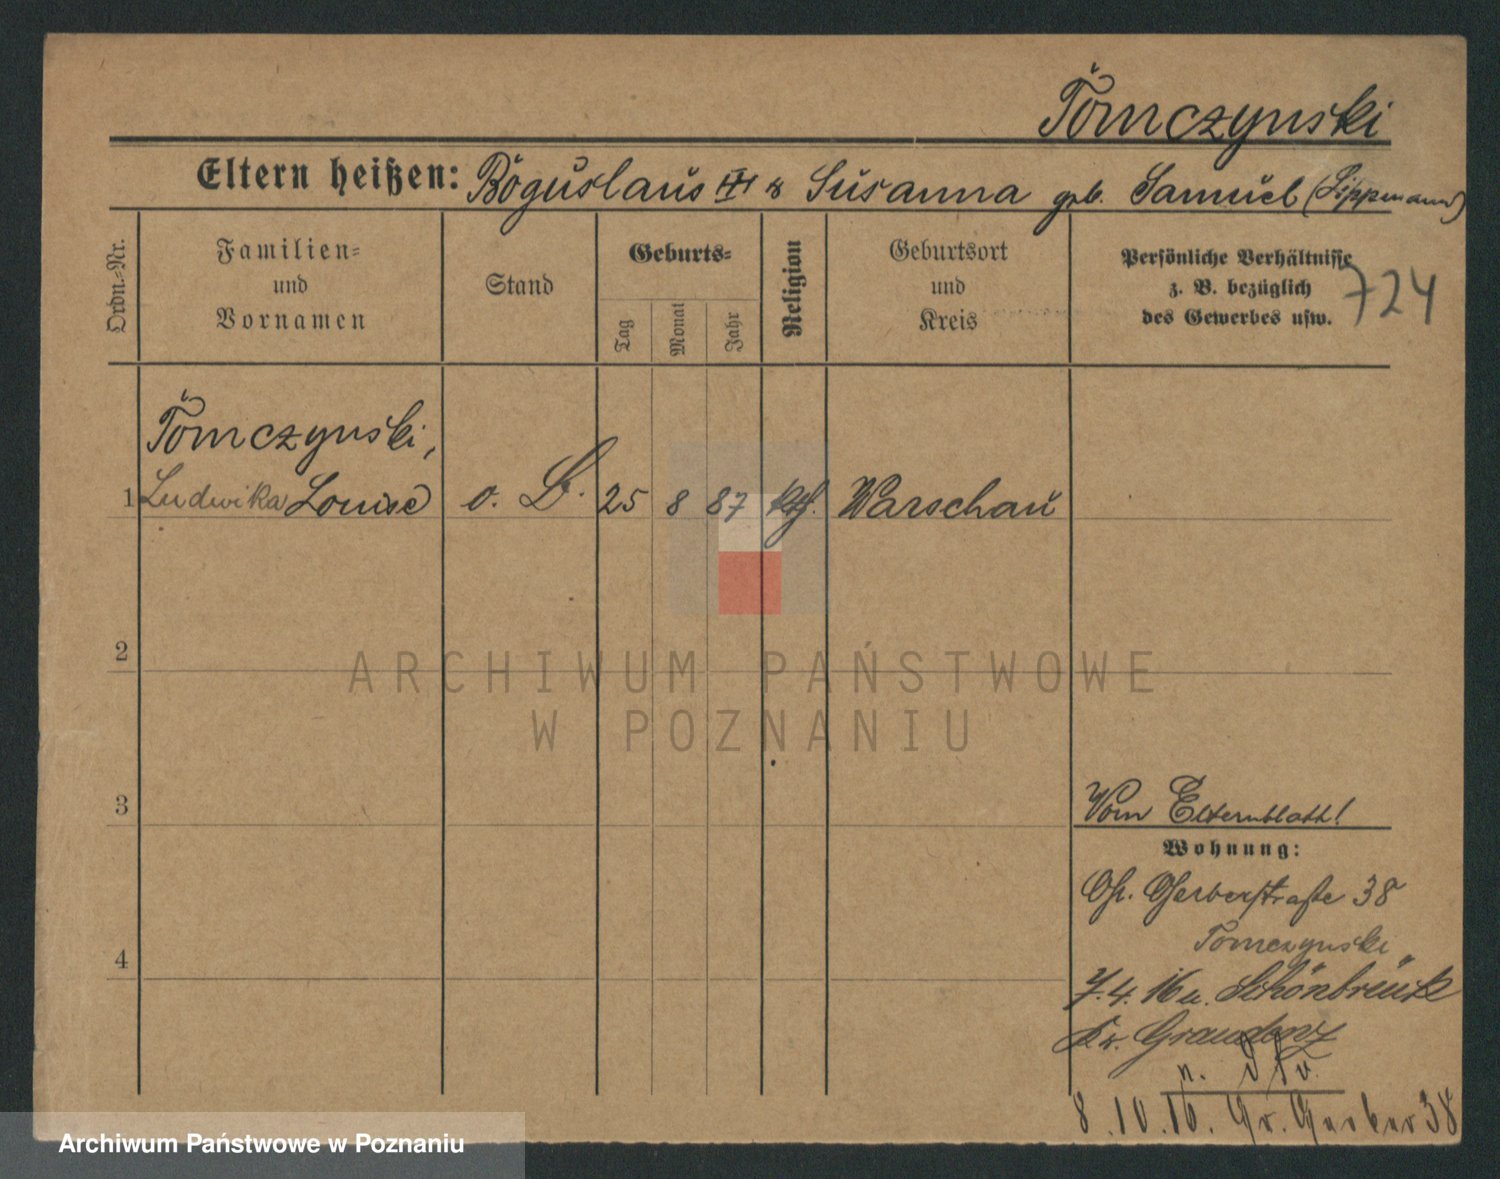 Tomczynski
Eltern heißen: Boguslaus III & Susanna geb. Samuel (Lippmann)
Ordn.-Nr.
Familien-
und
Vornamen
Stand
Geburts-
Tag
Monat
Jahr
Religion
Geburtsort
und
Kreis
Persönliche Verhältnisse
z. B. bezüglich
des Gewerbes usw.
724
Tomczynski,
1 Ludwika Louise o. B. 25 8 87 kth. Warschau
2
3
4
Vom Elternblatt!
Wohnung:
Gr. Gerberstraße 38
Tomczynski
7.4.16 n. Schönbrück
Kr. Graudenz
n.
8.10.16. Gr. Gerber 38
ARCHIWUM PAŃSTWOWE
W POZNANIU
Archiwum Państwowe w Poznaniu